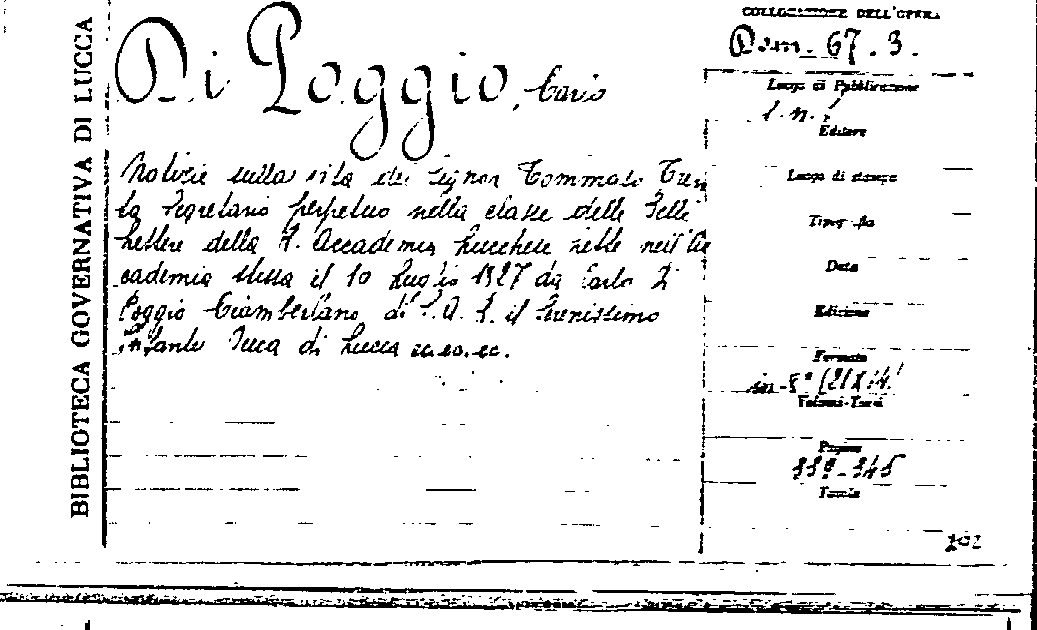 BIBLIOTECA GOVERNATIVA DI LUCCA
Di Poggio, Carlo
Notizie sulla vita del Signor Tommaso Tren
ta Segretario perpetuo nella classe delle Belle
Lettere della R. Accademia Lucchese lette nell'Ac
cademia stessa il 10 Luglio 1827 da Carlo Di
Poggio Ciamberlano di S. A. R. il Serenissimo
Infante Duca di Lucca ec. ec. ec.
COLLOCAZIONE DELL'OPERA
Dom. 67. 3.
Luogo di Pubblicazione
s. n.
Editore
Luogo di stampa
Tipografia
Data
Edizione
Formato
in-8° (21X14)
Volumi-Tomi
Pagine
339-345
Tavole